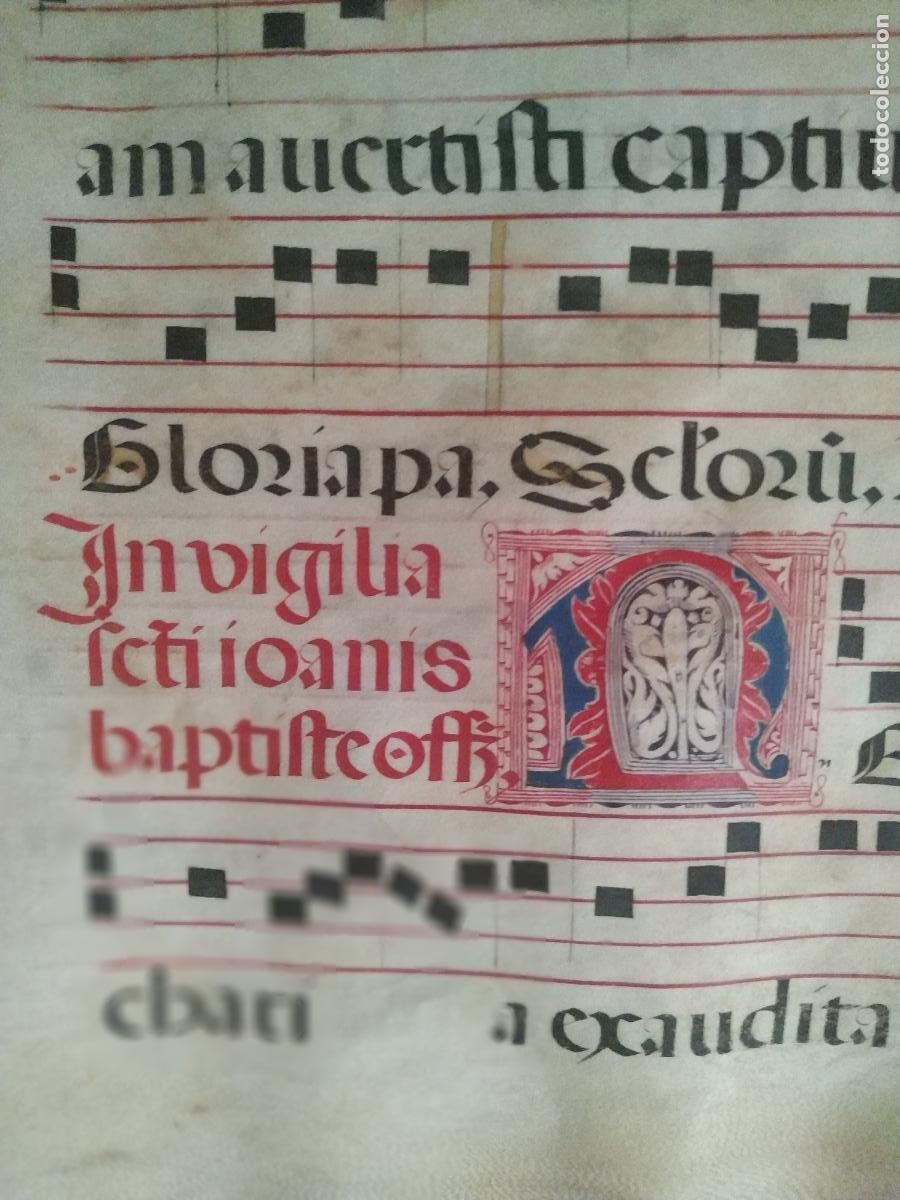 am auertisti captiu
Gloria pa. Sctorũ.
In vigilia
scti ioanis
baptiste off
N
cbari
a exaudita
todocoleccion